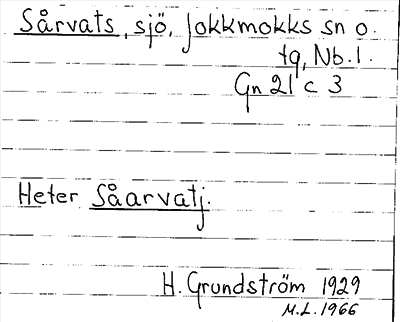 Sårvats, sjö, Jokkmokks sn o.
tg, Nb. l.
Gn 21 c 3
Heter Såarvatj.
H. Grundström 1929
M.L. 1966